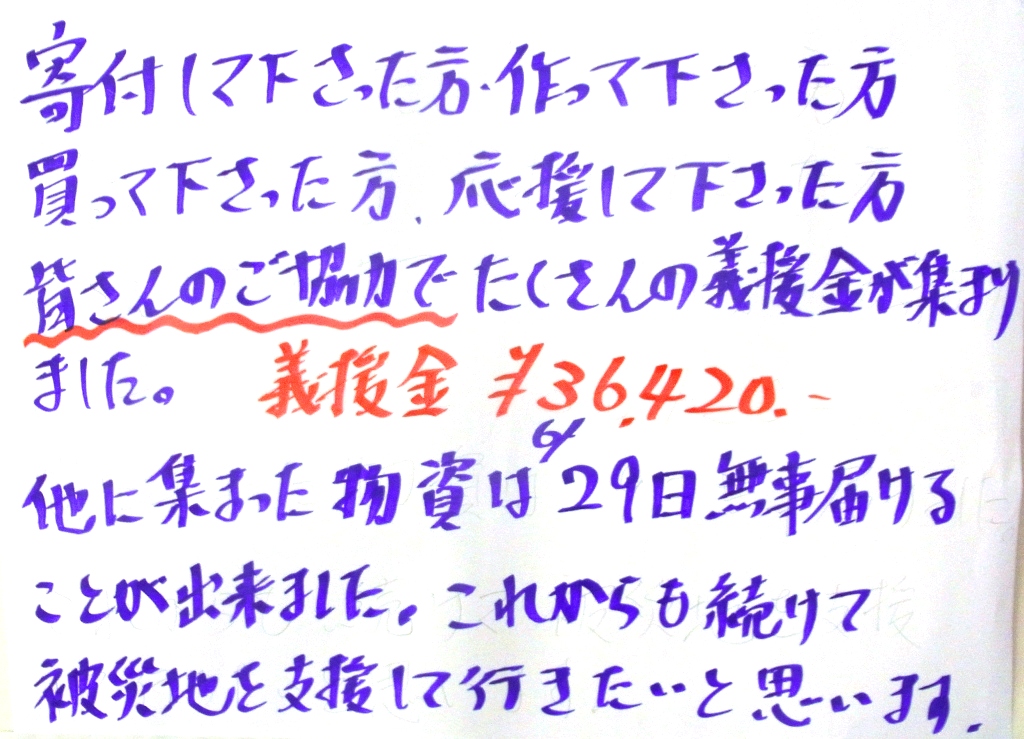 寄付して下さった方・作って下さった方
買って下さった方、応援して下さった方
皆さんのご協力でたくさんの義援金が集まり
ました。 義援金 ¥36,420.-
他に集まった物資は6/29日無事届ける
ことが出来ました。これからも続けて
被災地を支援して行きたいと思います.